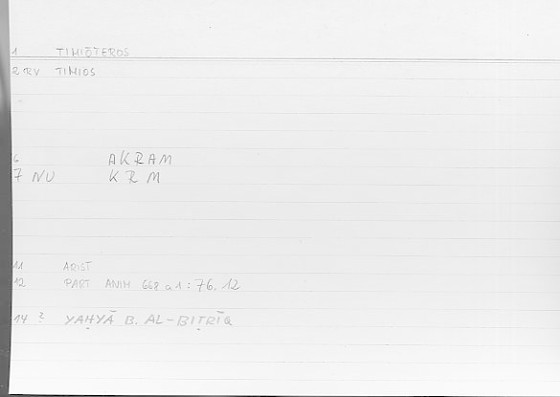 1 TIMIŌTEROS
2 RV TIMIOS
6 AKRAM
7 NU KRM
11 ARIST
12 PART ANIM 668 a 1 : 76.12
14 ? YAḤYĀ B. AL-BIṬRĪQ